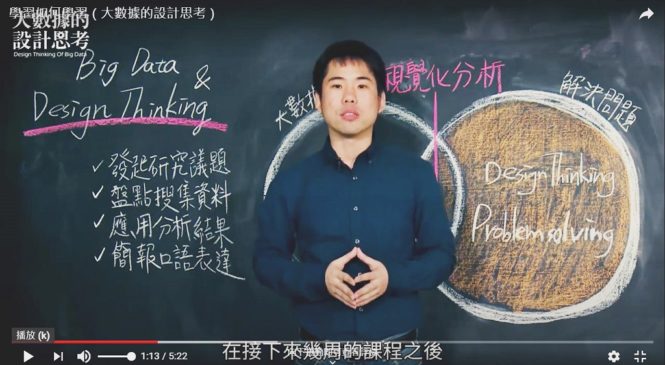 學習如何學習 ( 大數據的設計思考 )
大數據的
設計思考
Design Thinking Of Big Data
Big Data &
Design Thinking
✓ 發起研究議題
✓ 盤點搜集資料
✓ 應用分析結果
✓ 簡報口語表達
大數
視覺化分析
解決問題
Design Thinking
Problem solving
播放 (k)
1:13 / 5:22
在接下來幾周的課程之後